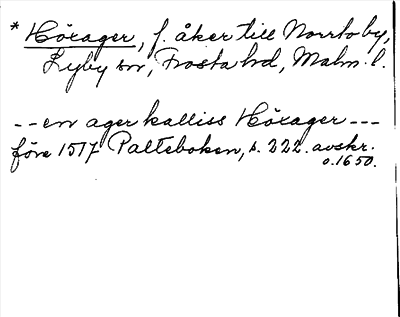 * Höxager, f. åker till Norrto by,
Lyby sn, Frosta hd, Malm. l.
-- en ager kalliss Höxager ---
före 1517 Palteboken, s. 222. avskr.
o. 1650.